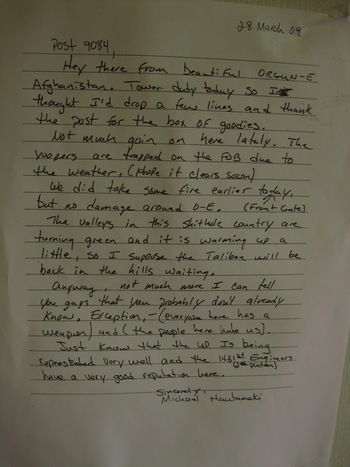 28 March 09
Post 9084,
Hey there from beautiful ORGUN-E
Afghanistan. Tower duty today so I
thought I'd drop a few lines and thank
the post for the box of goodies.
Not much goin on here lately. The
yoopers are trapped on the FOB due to
the weather. (Hope it clears soon)
We did take some fire earlier today,
but no damage around O-E. (Front Gate)
The valleys in this shithole country are
turning green and it is warming up a
little, so I suppose the Taliban will be
back in the hills waiting.
Anyway, not much more I can tell
you guys that you probably don't already
know. Exception, - (everyone here has a
weapon) and (the people here hate us).
Just know that the UP is being
represented very well and the 1431st Engineers
have a very good reputation here.
Sincerely,
Michael Hautamaki